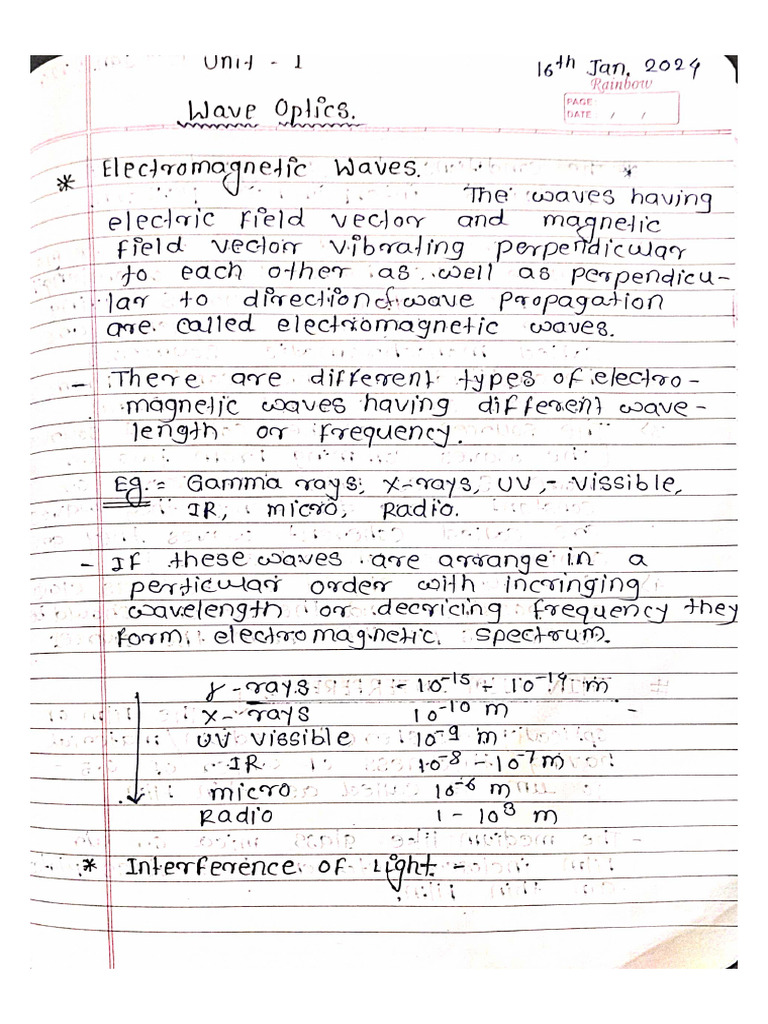 Unit - 1
16th Jan, 2024
Rainbow
PAGE:
DATE: / /
Wave Optics.
* Electromagnetic Waves.
The waves having
electric field vector and magnetic
field vector vibrating perpendicular
to each other as well as perpendicu-
lar to direction of wave propagation
are called electromagnetic waves.
- There are different types of electro-
magnetic waves having different wave-
length or frequency.
Eg. = Gamma rays, x-rays, UV, - Vissible,
IR, micro, Radio.
- If these waves are arrange in a
perticular order with incringing
wavelength or decricing frequency they
form electromagnetic spectrum.
γ - rays - 10⁻¹⁵ - 10⁻¹⁴ m
x - rays 10⁻¹⁰ m -
UV Vissible 10⁻⁹ m
IR 10⁻⁸ - 10⁻⁷ m
micro 10⁻⁶ m
Radio 1 - 10⁸ m
* Interference of Light. -